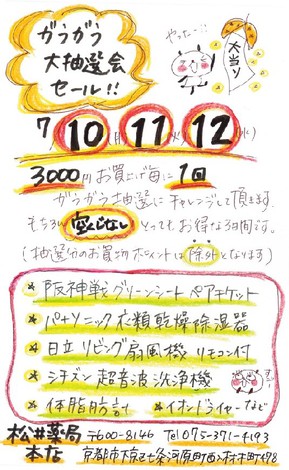 がらがら
大抽選会
セール!!
やったー!!
大当り
7/10(月)11(火)12(水)
3000円お買上げ毎に1回
ガラガラ抽選にチャレンジして頂きます。
もちろん空くじなし とってもお得な3日間です。
(抽選分のお買物ポイントは除外となります)
* 阪神戦グリーンシート ペアチケット
* パナソニック 衣類乾燥除湿器
* 日立リビング扇風機 リモコン付
* シチズン 超音波洗浄機
* 体脂肪計 * イオンドライヤーなど
松井薬局 〒600-8146 Tel 075-371-4193
本店 京都市下京区七条河原町西入材木町498